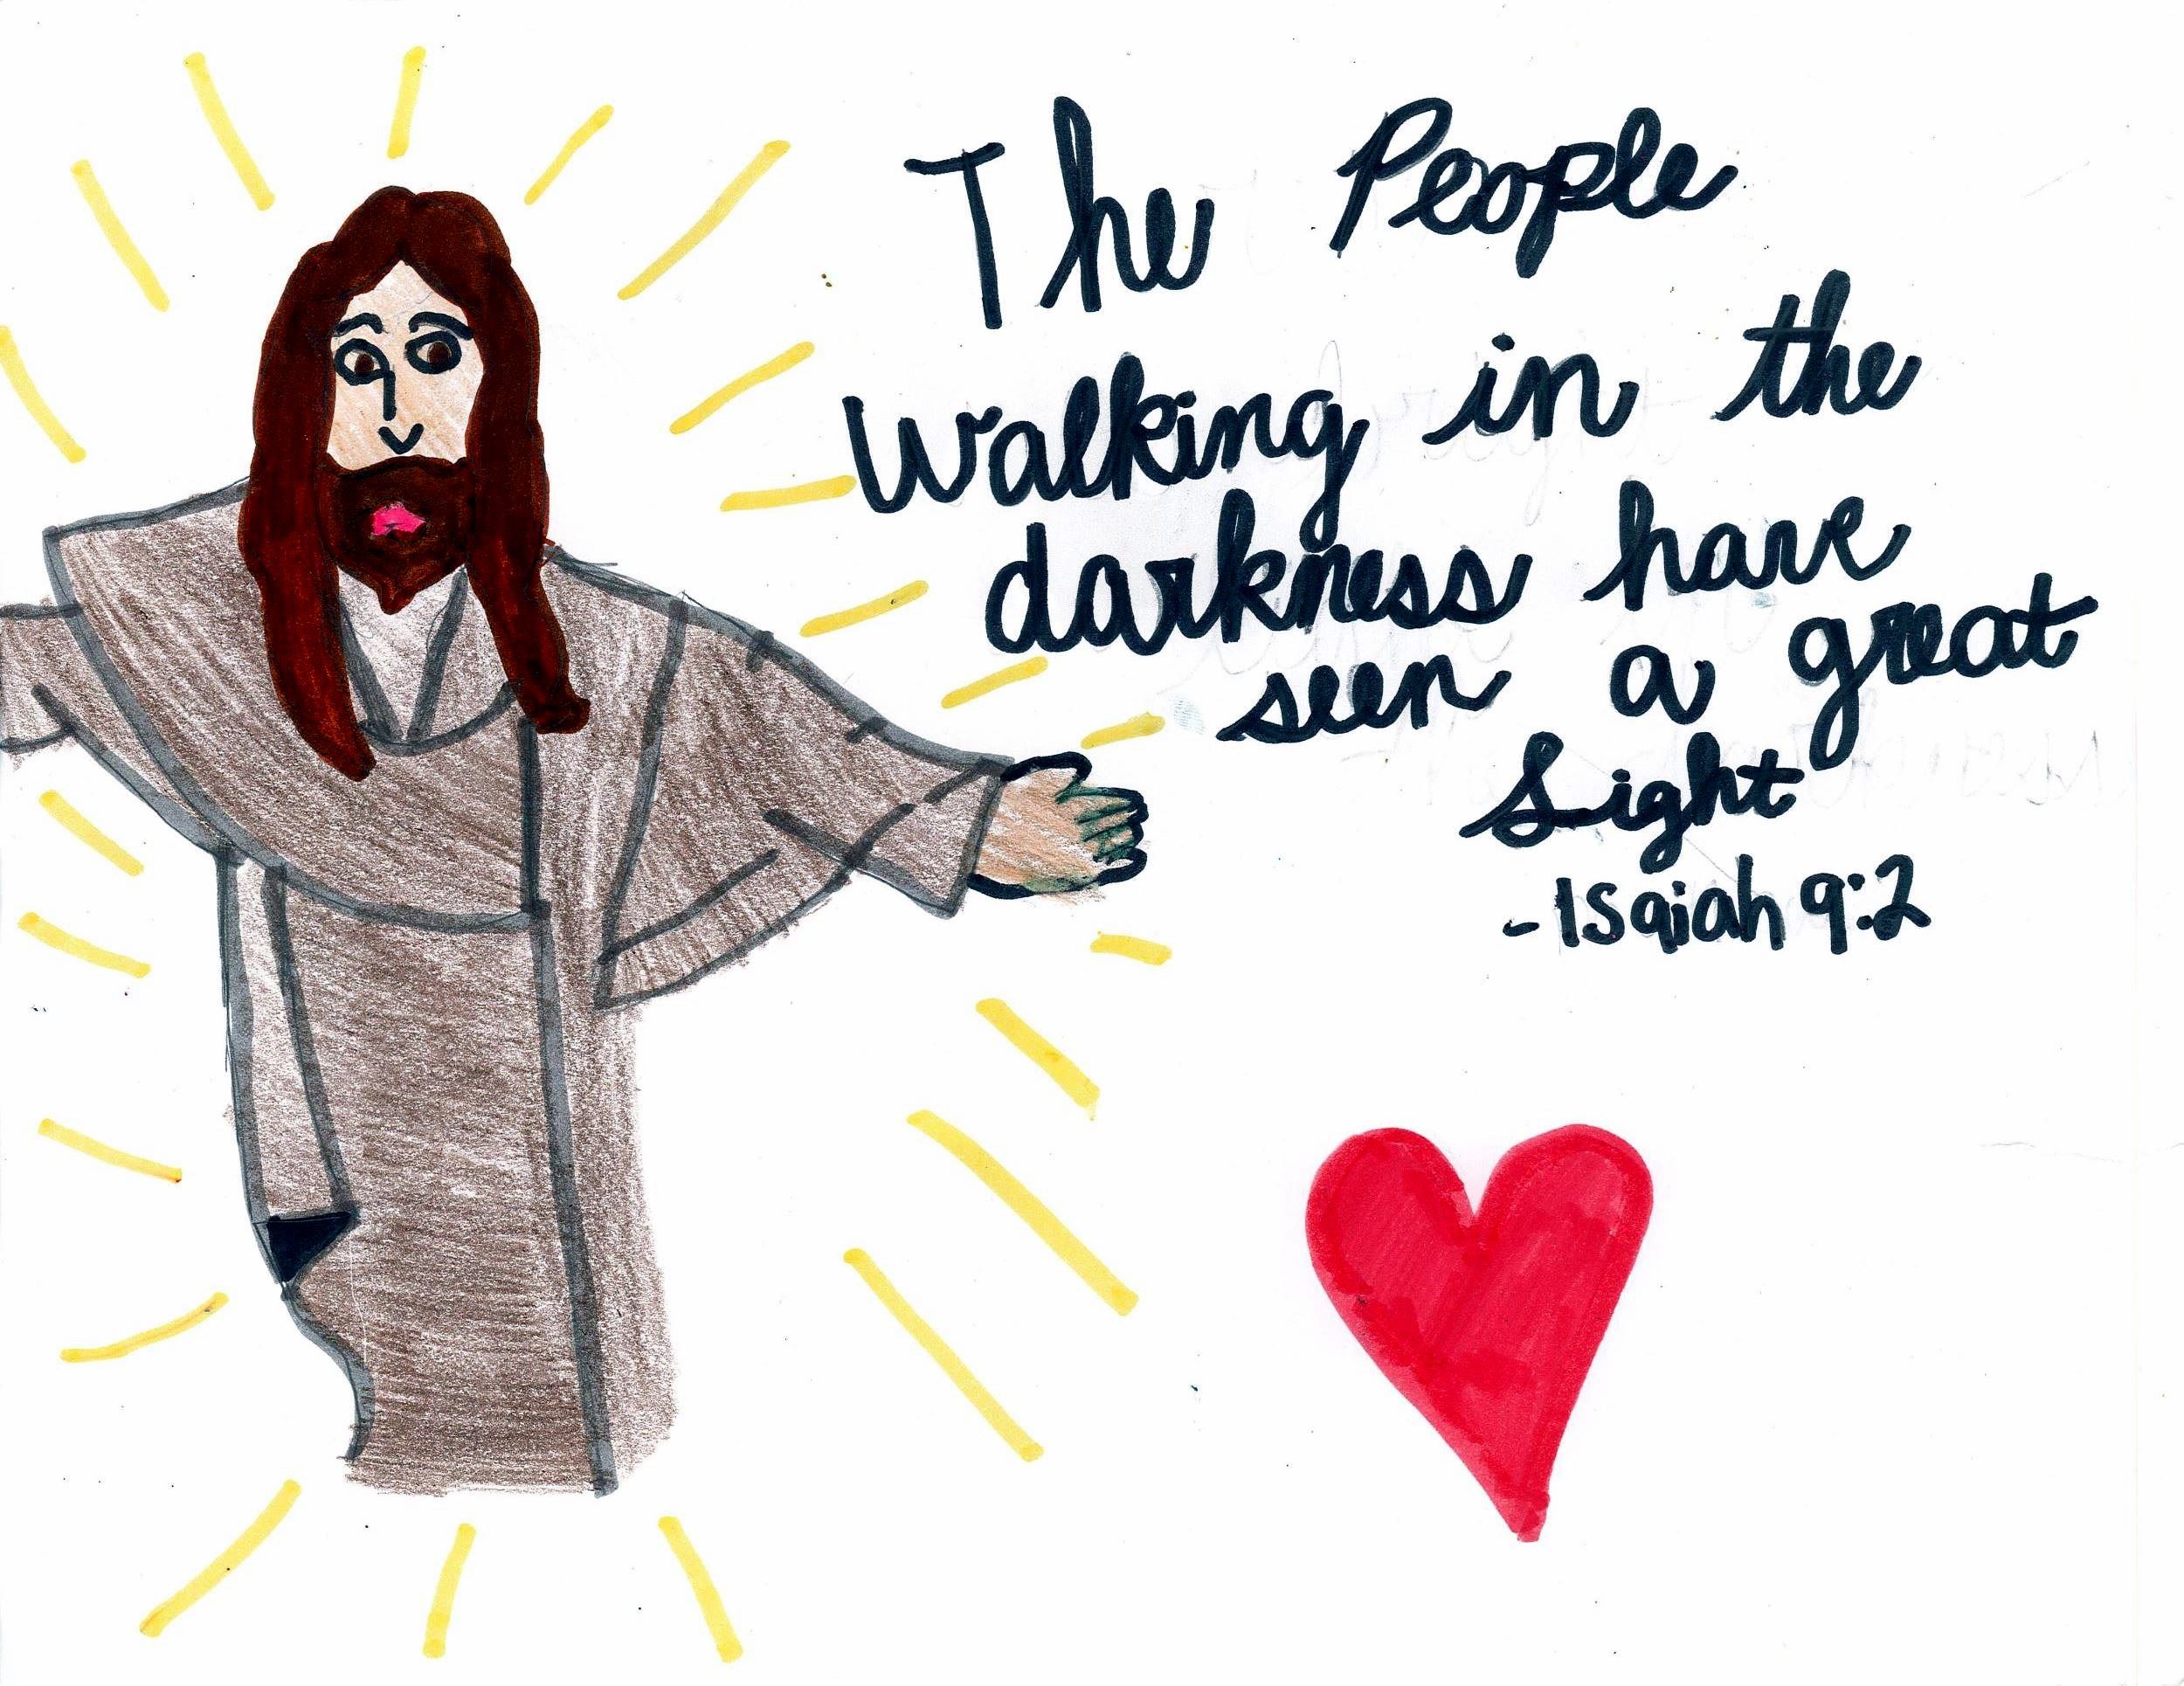 The People
Walking in the
darkness have
seen a great
Sight
-Isaiah 9:2